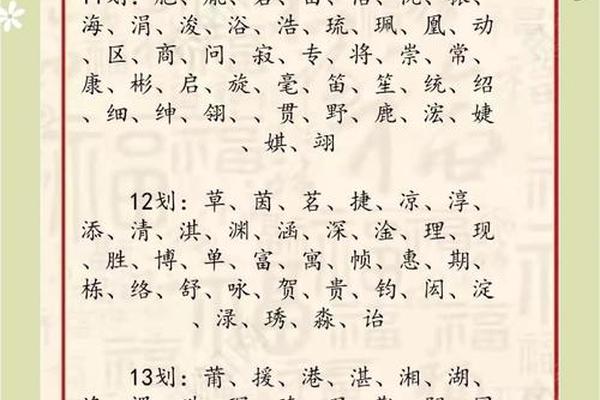 海、涓、浚、浴、浩、琉、珮、凰、动
、区、商、问、寂、专、将、崇、常、
康、彬、启、旋、毫、笛、笙、统、绍
、细、绅、翎、、贯、野、鹿、浤、婕
、娸、翊
12划：草、茵、茗、捷、凉、淳、
添、清、淇、渊、涵、深、淦、理、现
、胜、博、单、富、寓、帧、惠、期、
栋、络、舒、咏、贺、贵、钧、闳、淀
、渌、琇、淼、诒
13划：莆、援、港、湛、湘、湖、